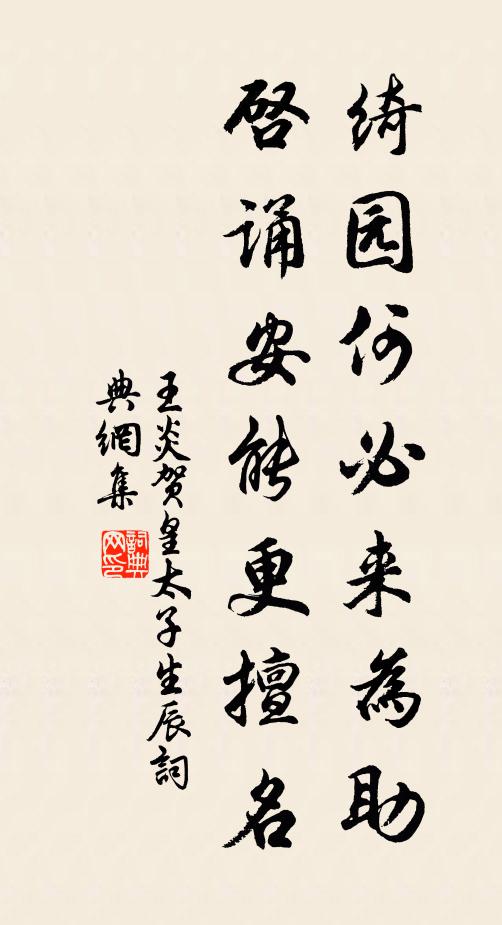 绮园何必来為助
啓诵安能更擅名
王炎贺皇太子生辰詞
典網集
詞典
网印